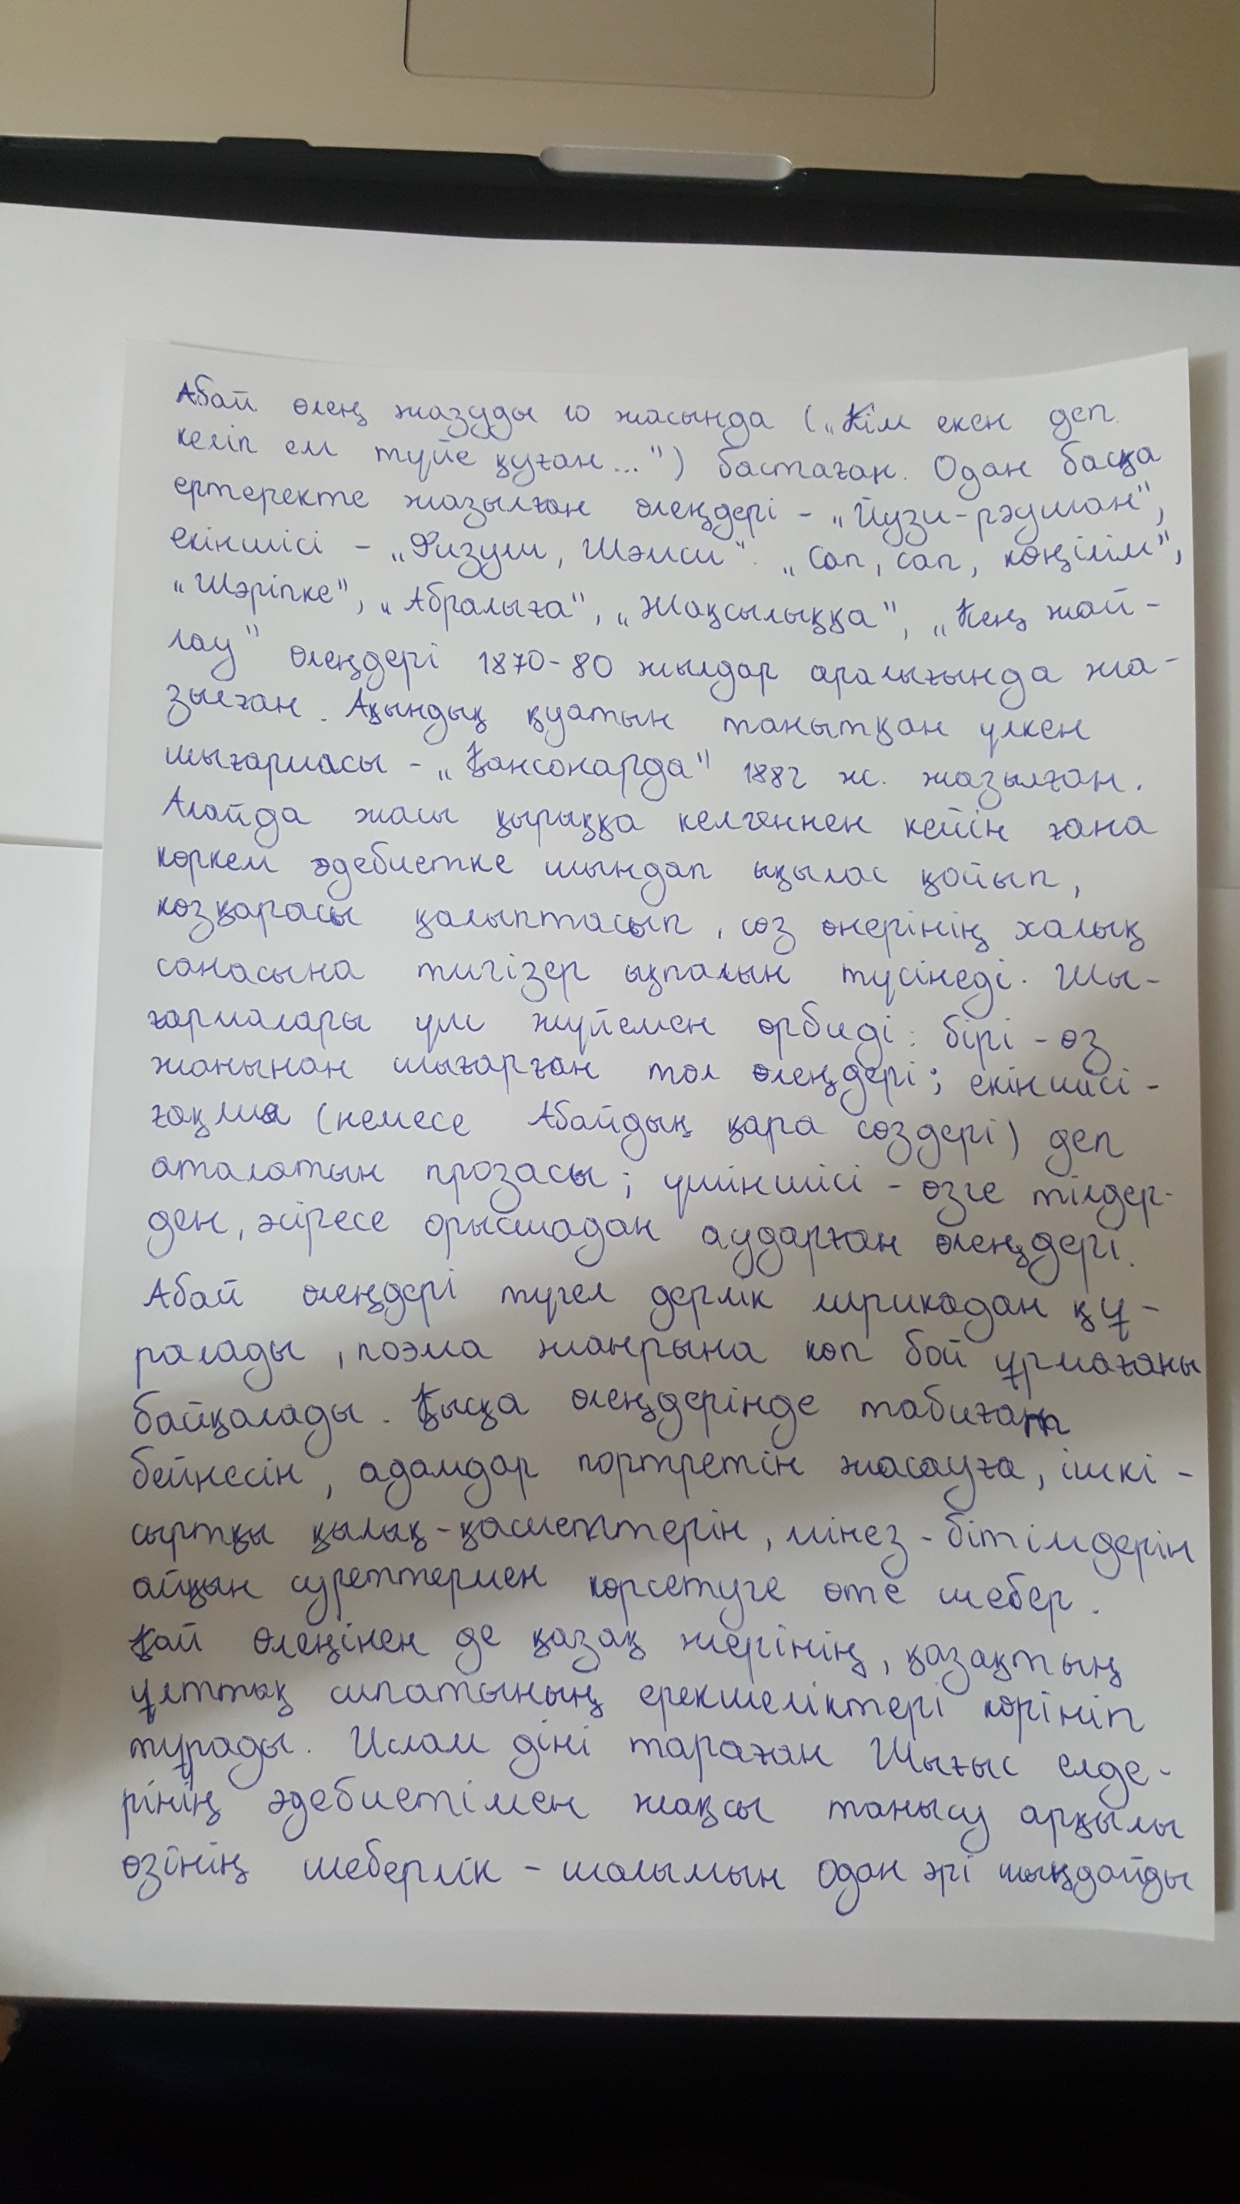 Абай өлең жазуды 10 жасында („Кім екен деп
келіп ем түйе қуған...") бастаған. Одан басқа
ертеректе жазылған өлеңдері - „Йузи-рәушан",
екіншісі - „Физули, Шәмси". „Сап, сап, көңілім",
„Шәріпке", „Абралыға", „Жақсылыққа", „Кең жай-
лау" өлеңдері 1870-80 жылдар аралығында жа-
зылған. Ақындық қуатын танытқан үлкен
шығармасы - „Қансонарда" 1882 ж. жазылған.
Алайда жасы қырыққа келгеннен кейін ғана
көркем әдебиетке шындап ықылас қойып,
көзқарасы қалыптасып, сөз өнерінің халық
санасына тигізер ықпалын түсінеді. Шы-
ғармалары үш жүйемен өрбиді: бірі - өз
жанынан шығарған төл өлеңдері; екіншісі -
ғақлиа (немесе Абайдың қара сөздері) деп
аталатын прозасы; үшіншісі - өзге тілдер-
ден, әсіресе орысшадан аударған өлеңдері.
Абай өлеңдері түгел дерлік лирикадан құ-
ралады, поэма жанрына көп бой ұрмағаны
байқалады. Қысқа өлеңдерінде табиғат
бейнесін, адамдар портретін жасауға, ішкі -
сыртқы қылық-қасиеттерін, мінез-бітімдерін
айқын суреттермен көрсетуге өте шебер.
Қай өлеңінен де қазақ жерінің, қазақтың
ұлттық сипатының ерекшеліктері көрініп
тұрады. Ислам діні тараған Шығыс елде-
рінің әдебиетімен жақсы танысу арқылы
өзінің шеберлік - шалымын одан әрі шыңдайды